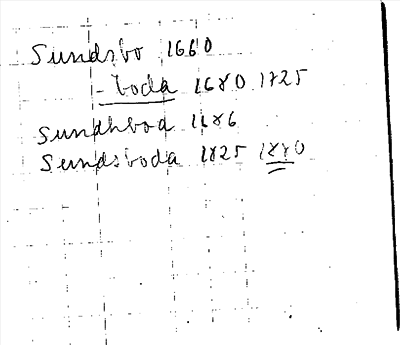 Sundsbo 1660
- boda 1680 1725
Sundhbod 1686
Sundsboda 1825 1880